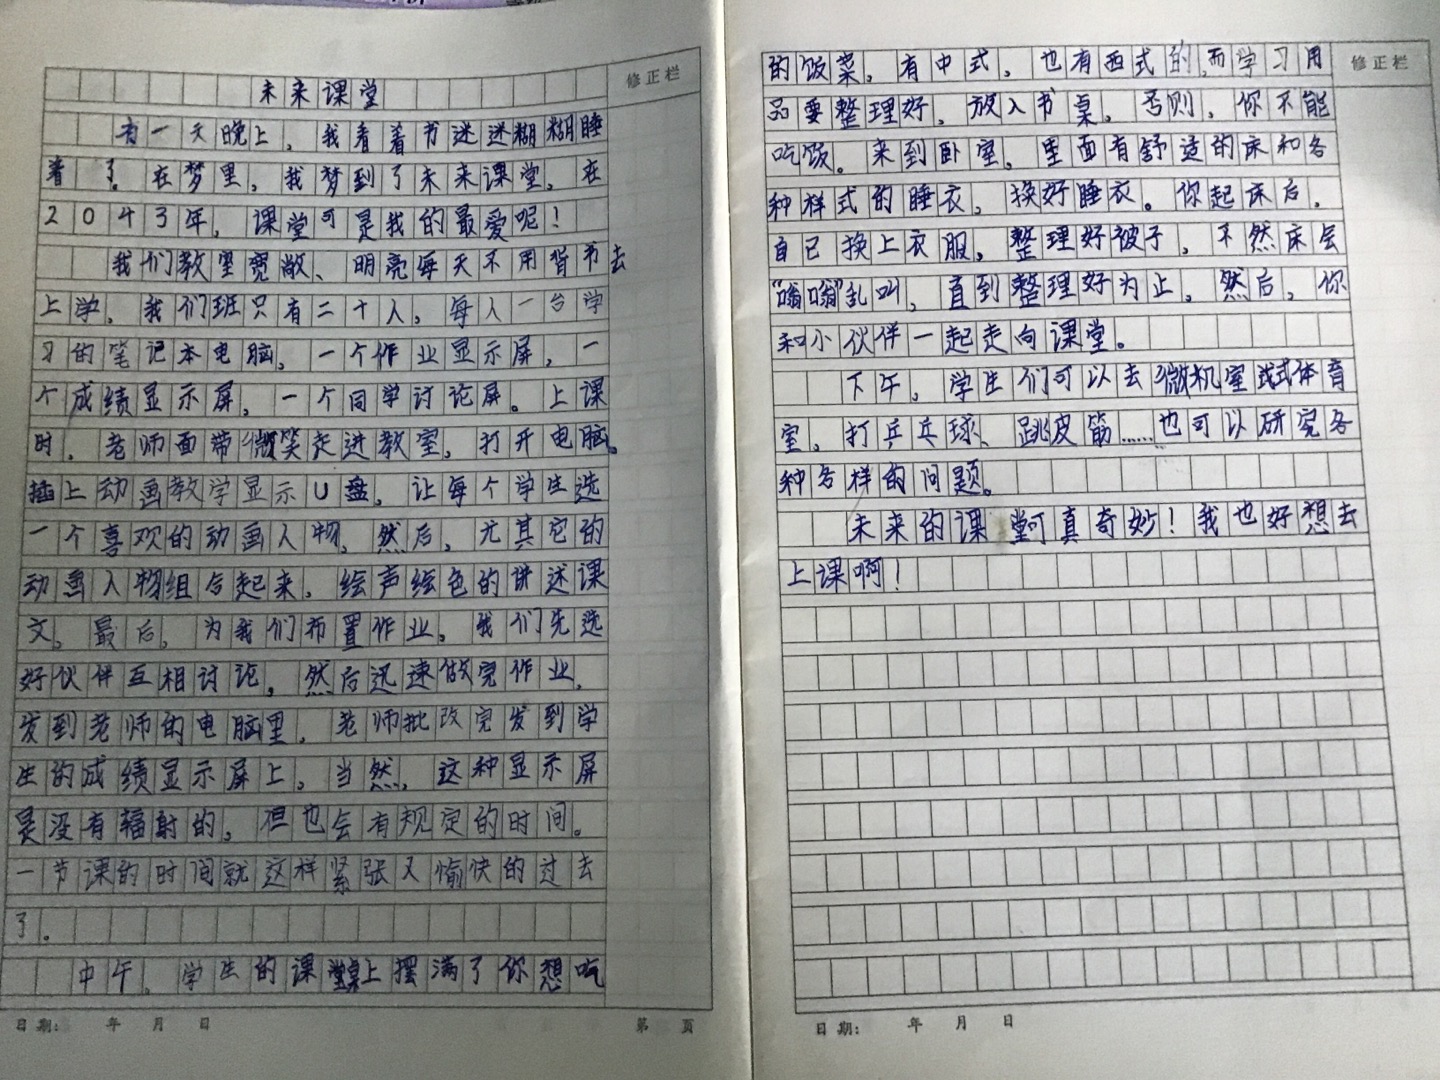 修正栏
未来课堂
有一天晚上，我看着书迷迷糊糊睡
着了。在梦里，我梦到了未来课堂，在
2043年，课堂可是我的最爱呢！
我们教室宽敞、明亮每天不用背书去
上学，我们班只有二十人，每人一台学
习的笔记本电脑，一个作业显示屏，一
个成绩显示屏，一个同学讨论屏。上课
时，老师面带微笑走进教室，打开电脑。
插上动画教学显示U盘，让每个学生选
一个喜欢的动画人物，然后，尤其它的
动画人物组合起来，绘声绘色的讲述课
文。最后，为我们布置作业，我们先选
好伙伴互相讨论，然后迅速做完作业，
发到老师的电脑里，老师批改完发到学
生的成绩显示屏上，当然，这种显示屏
是没有辐射的，但也会有规定的时间。
一节课的时间就这样紧张又愉快的过去
了。
中午，学生的课桌上摆满了你想吃
日期： 年 月 日
第 页
修正栏
的饭菜，有中式，也有西式的，而学习用
品要整理好，放入书桌，否则，你不能
吃饭。来到卧室，里面有舒适的床和各
种样式的睡衣，换好睡衣。你起床后，
自己换上衣服，整理好被子，不然床会
“嗡嗡”乱叫，直到整理好为止，然后，你
和小伙伴一起走向课堂。
下午，学生们可以去微机室或体育
室，打乒乓球、跳皮筋……也可以研究各
种各样的问题。
未来的课堂可真奇妙！我也好想去
上课啊！
日期： 年 月 日